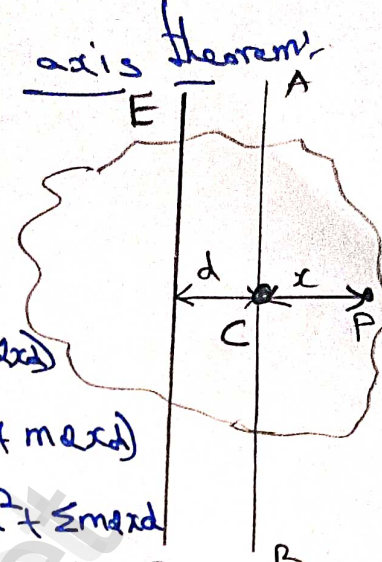 axis theorem:
E A
d x
C P
2xd)
+ m2xd)
² + Σm2xd
B